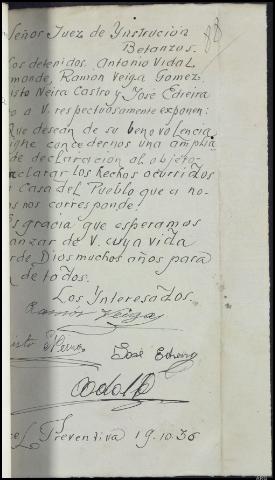 88
Señor Juez de Ynstrucción
Betanzos.
Los detenidos Antonio Vidal
Ramon Veiga Gomez,
Neira Castro y José Edreira
a V. respectuosamente exponen:
Que desean de su benevolencia
concedernos una amplia
de declaración al objeto
aclarar los hechos ocurridos
Casa del Pueblo que a no-
nos corresponde!
Es gracia que esperamos
anzar de V. cuya vida
rde Dios muchos años para
de todos.
Los Ynteresados.
Ramón Veiga
José Edreira
Preventiva 19.10.36